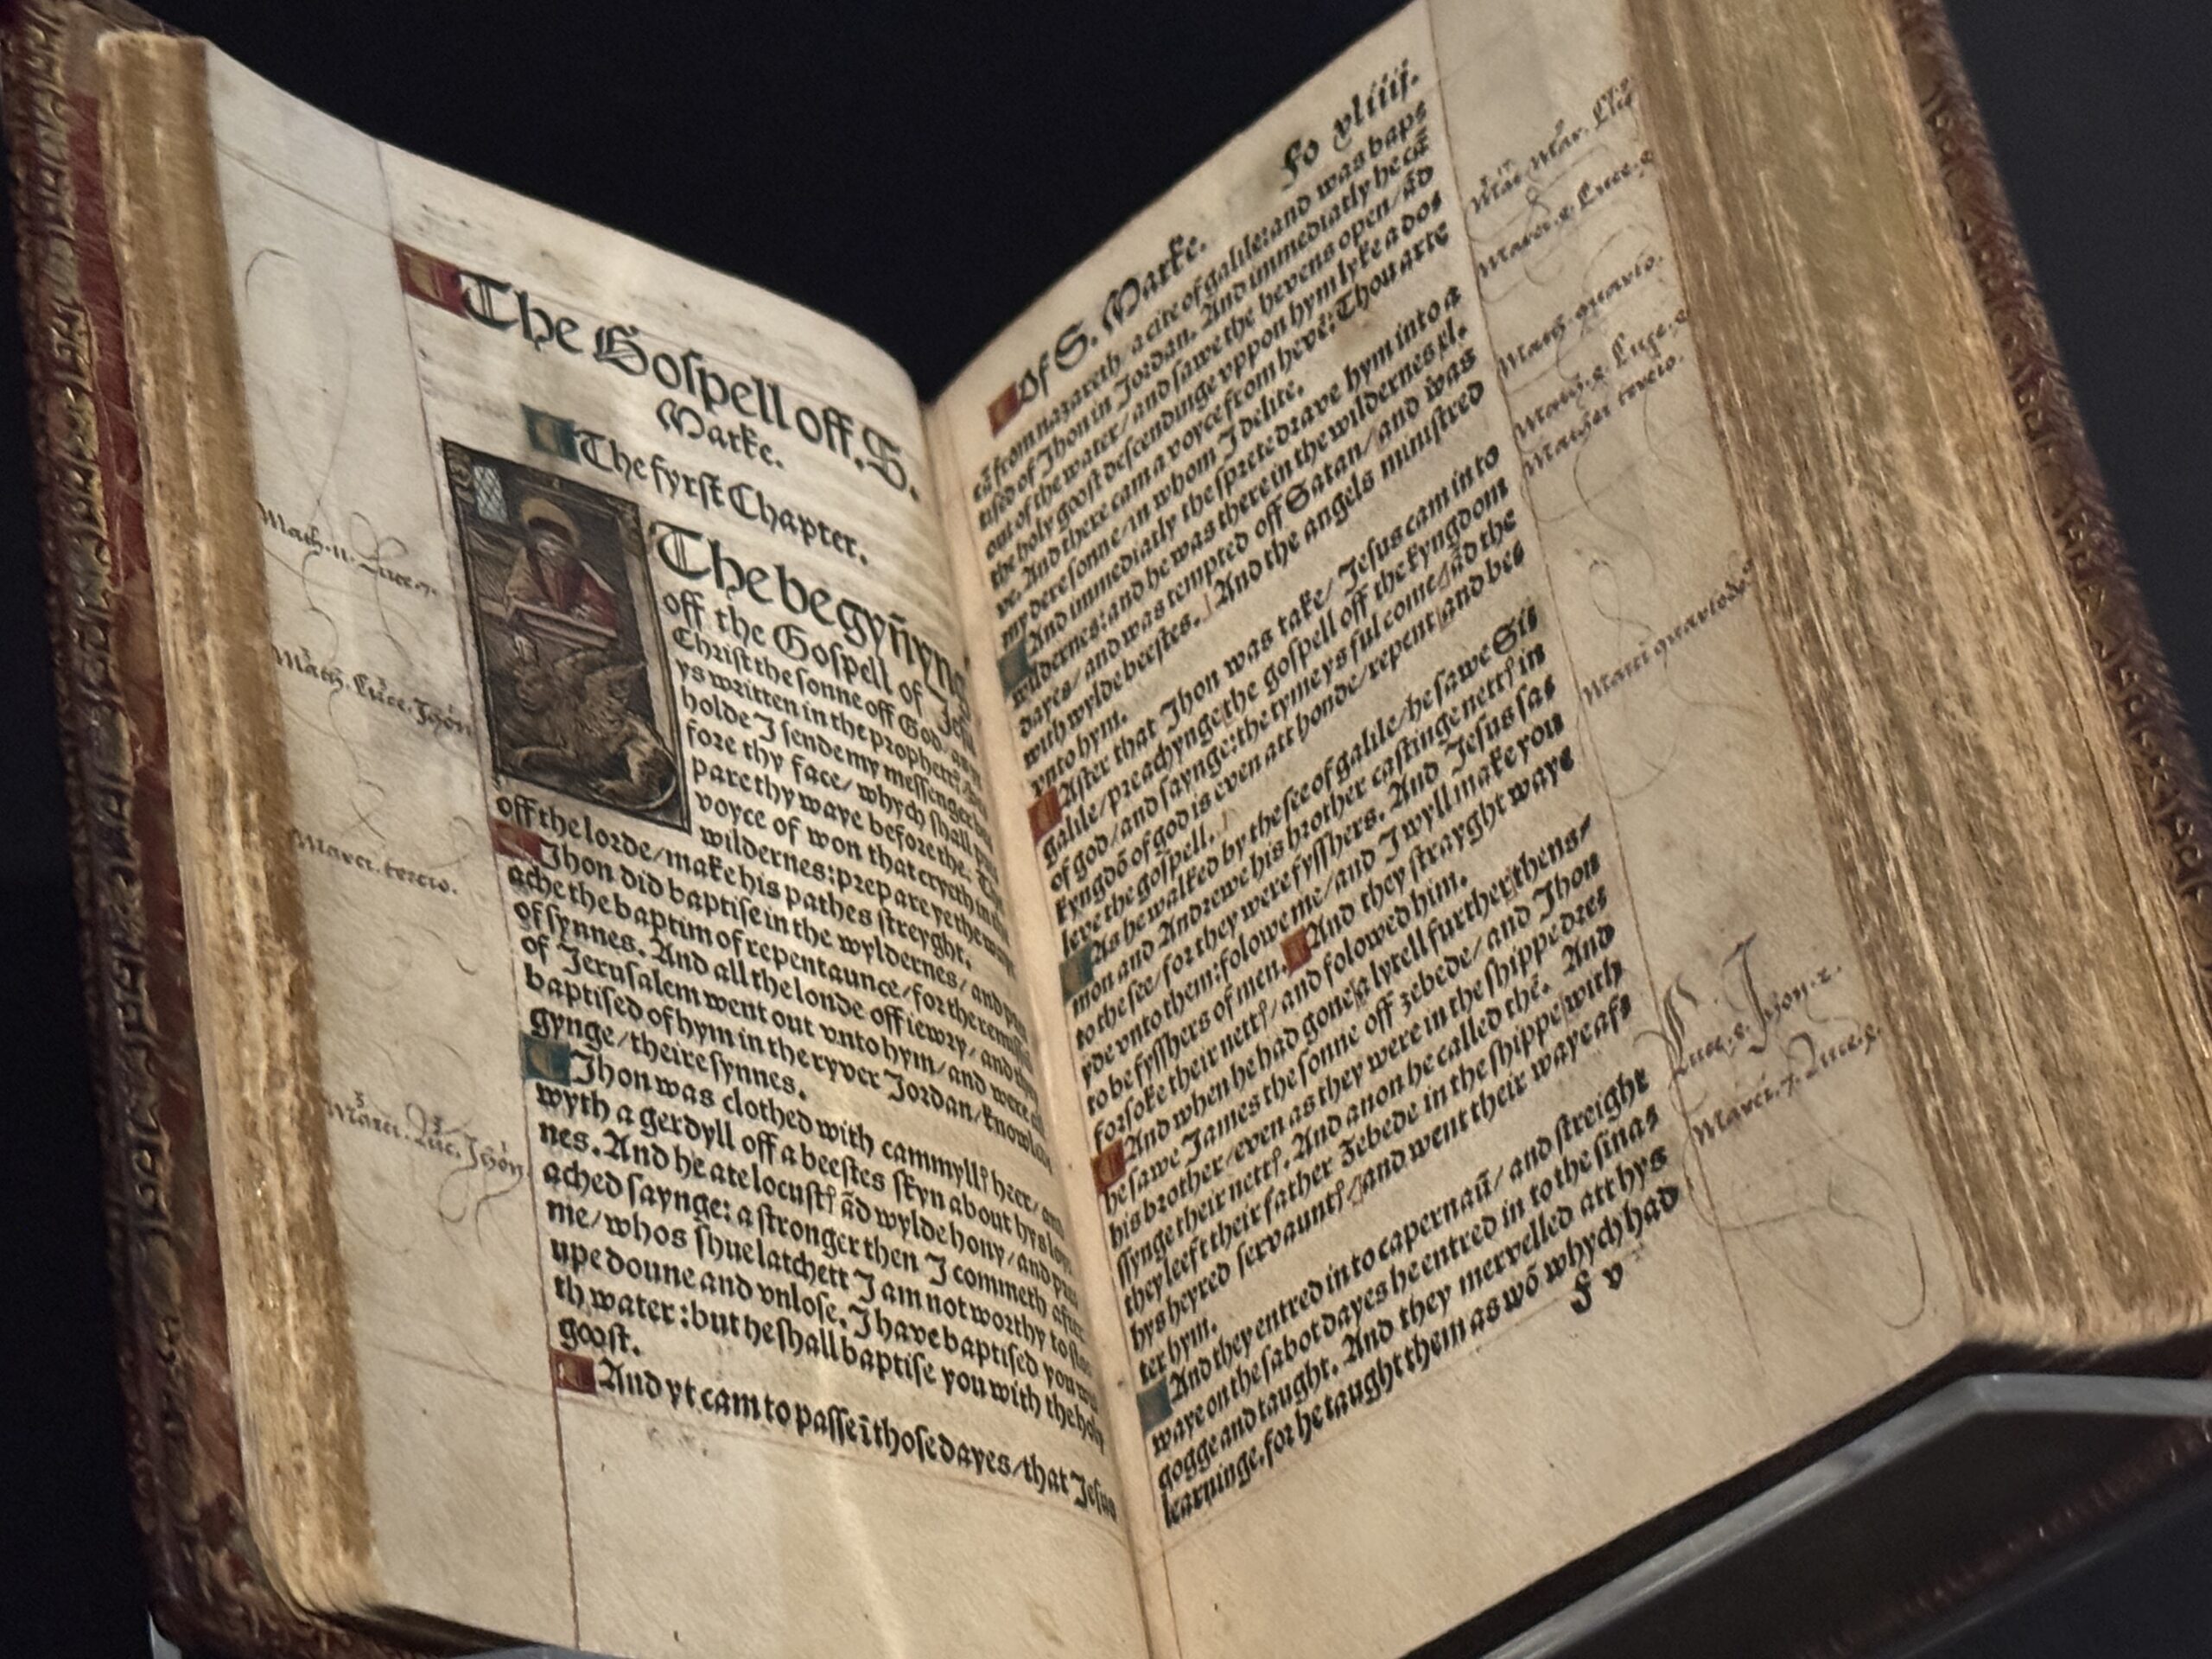 The Gospell off. S.
Marke.
The fyrst Chapter.
The begyñyng
off the Gospell of Jesu
Christ the sonne off God, as
ys written in the prophettꝭ,
holde I sende my messenger be
fore thy face/ whych shall pre
pare thy waye before the. The
voyce of won that cryeth in the
wildernes: prepare ye the waye
off the lorde/ make his pathes streyght.
Jhon did baptise in the wyldernes/ and pre
ache the baptim of repentaunce/ for the remission
of synnes. And all the londe off iewry/ and they
of Jerusalem went out vnto hym/ and were all
baptised of hym in the ryver Jordan/ knowled
gynge/ theire synnes.
Jhon was clothed with cammyllꝭ heer/ and
wyth a gerdyll off a beestes skyn about hys loy
nes. And he ate locustꝭ ād wylde hony/ and pre
ached saynge: a stronger then I commeth after
me/ whos shue latchett I am not worthy to stou
upe doune and vnlose. I have baptised you wi
th water: but he shall baptise you with the holy
goost.
And yt cam to passe ī those dayes/ that Jesus
Math. 11. Luce. 7.
Math. Luce. Jhon
Marci. tercio.
Marci. Luc. Jhon
Of S. Marke. Fo xliiij.
cā from nazareth/ a cite of galile: and was bap-
tised of Jhon in Jordan. And immediatly he cā
out of the water/ and sawe the hevens open/ ād
the holy goost descendinge vppon hym lyke a do-
ve. And there cam a voyce from heven: Thou arte
my dere sonne/ in whom I delite.
And immediatly the sprete drave hym into a
wildernes: and he was there in the wildernes xl.
dayes/ and was tempted off Satan/ and was
with wylde beestes. And the angels ministred
vnto hym.
After that Jhon was take/ Jesus cam in to
galile/ preachynge the gospell off the kyngdom
of god/ and saynge: the tyme ys ful come/ ād the
kyngdō of god is even att honde/ repent and be-
leve the gospell.
As he walked by the see of galile/ he sawe Si-
mon and Andrewe his brother castinge nettꝭ in
to the see/ for they were fysshers. And Jesus sa-
yde vnto them: folowe me/ and I wyll make you
to be fysshers of men. And they strayght waye
forsoke their nettꝭ/ and folowed him.
And when he had gone a lytell further thens/
he sawe James the sonne off zebede/ and Jhon
his brother/ even as they were in the shippe dre-
ssynge their nettꝭ. And anon he called thē. And
they leeft their father Zebede in the shippe with
hys heyred servauntꝭ/ and went their waye af-
ter hym.
And they entred in to capernaū/ and streight
waye on the sabot dayes he entred in to the sina-
gogge and taught. And they mervelled att hys
learninge. for he taught them as wō whych had
F v
Marci. 9. Luce. 9
Math. quarto.
Math. 4. Luce.
Mathei tercio.
Marci quartodec
Luce. 5. Jhon. 2.
Marci. 7. Luce.